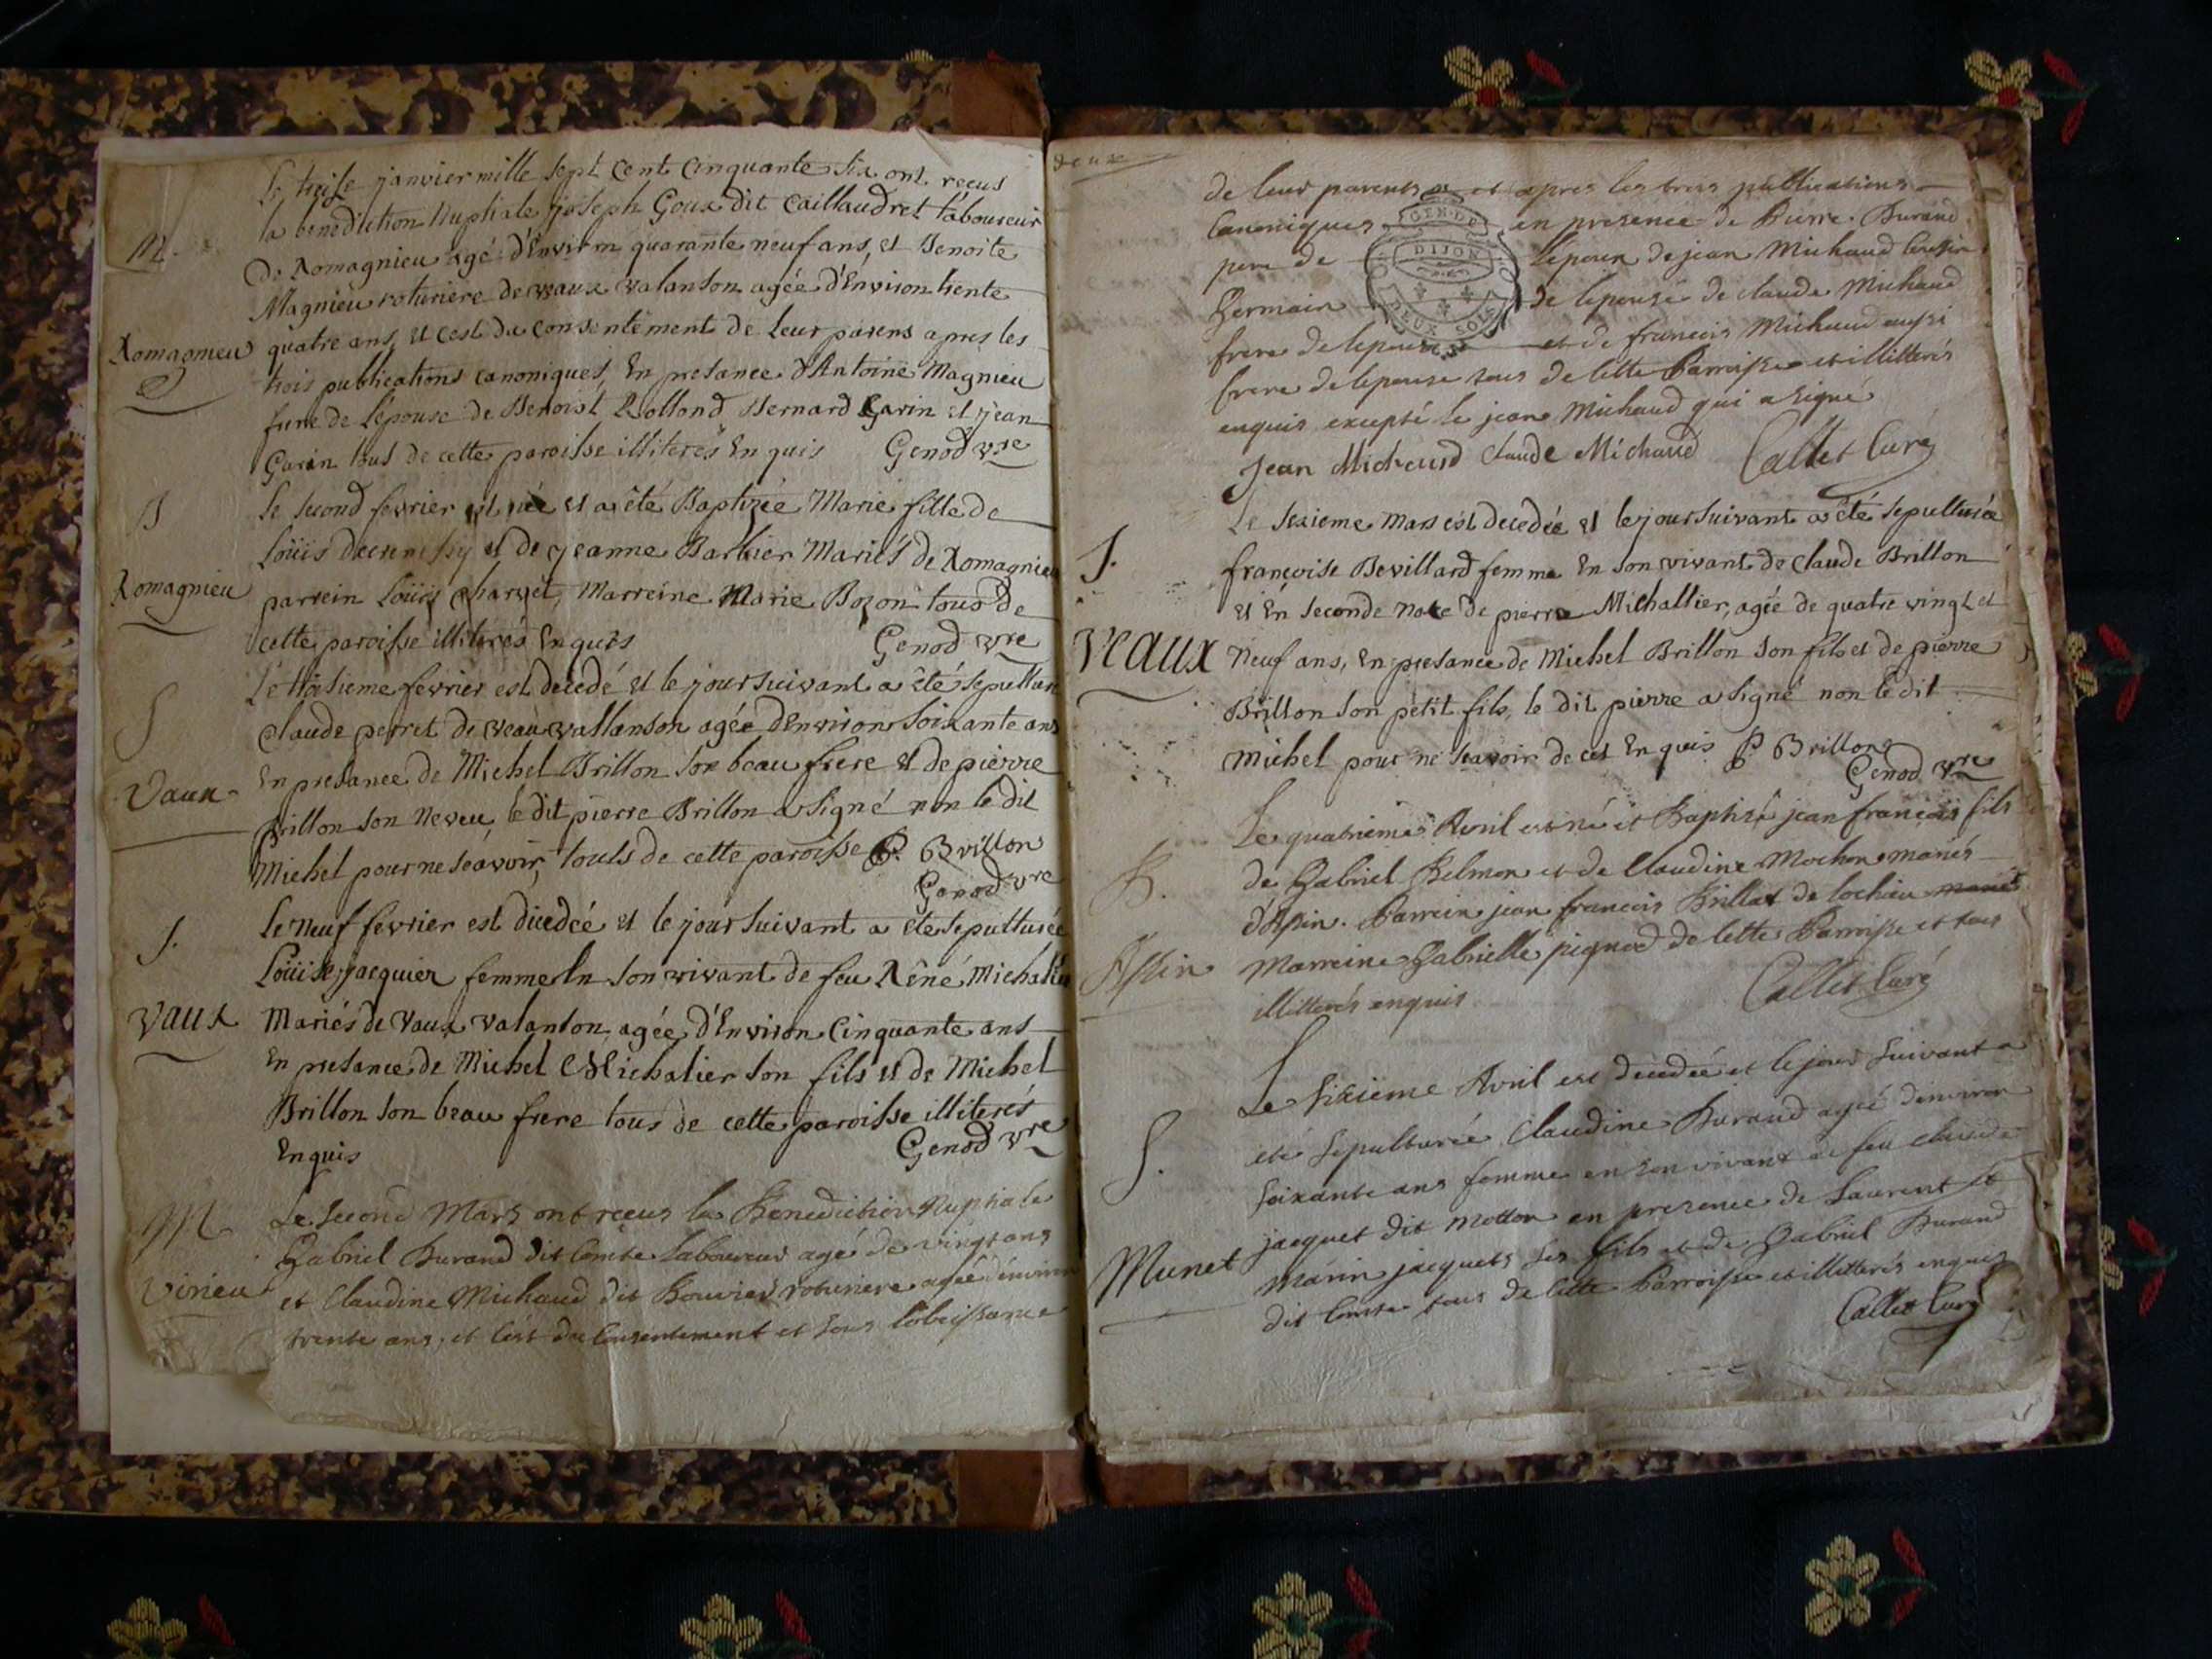 Le treise janvier mille sept cent cinquante six ont reçus
la benediction Nuptiale joseph Goux dit Caillaudret laboureur
M.
de Romagnieu agé d'Environ quarante neuf ans, et Benoite
Magnieu roturiere de vaux valanson agée d'Environ trente
Romagnieu
quatre ans, et c'est du consentement de leur parens apres les
trois publications canoniques, En presance d'Antoine Magnieu
frere de l'epouse de Benoist Rollond Bernard Garin et jean
Garin tous de cette paroisse illiteres En quis Genod vre
B
le second fevrier est née et a été Baptizée Marie fille de
Loüis et de jeanne Barbier Mariés de Romagnieu
Romagnieu
parrein Loüis charvet, Marreine Marie Bozon tous de
cette paroisse illiterés Enquis Genod vre
Le troisieme fevrier est decedé et le jour suivant a été sepulturé
S
claude perret de veaux vallanson agée d'Environ soixante ans
Vaux
En presance de Michel Brillon son beau frere et de pierre
Brillon son neveu, le dit pierre Brillon a signé non le dit
Michel pour ne sçavoir, touts de cette paroisse P. Brillon
Genod vre
S.
le neuf fevrier est decedée et le jour suivant a été sepulturée
Loüise jacquier femme En son vivant de feu Réné Michalier
vaux
Mariés de Vaux valanson, agée d'Environ Cinquante ans
En presance de Michel Michalier son fils et de Michel
Brillon son beau frere tous de cette paroisse illiterés
Enquis Genod vre
M
Le Second Mars ont reçus la Benediction Nuptiale
Gabriel Durand dit Comte laboureur agé de vingt ans
Virieu
et Claudine Michaud dit Bouvier roturiere agée d'environ
trente ans, et c'est du Consentement et sous l'obeissance
deux
de leur parents et apres les trois publications
Canoniques en presence de Pierre Durand
GEN. DE DIJON
DEUX SOLS
pere de l'epoux de jean Michaud Cousin
Germain de l'epouse de claude Michaud
frere de l'epouse et de francois Michaud aussi
frere de l'epouse tous de Cette Parroisse et illitterés
enquis excepté le jean Michaud qui a signé
Jean Michaud Claude Michaud Callet Curé
Le sexieme Mars est decedée et le jour suivant a été sepulturée
S.
françoise Bevillard femme En son vivant de Claude Brillon
et En seconde noce de pierre Michallier, agée de quatre vingt et
Veaux
neuf ans, En presance de Michel Brillon son fils et de pierre
Brillon son petit fils, le dit pierre a signé non le dit
Michel pour ne sçavoir de ces Enquis P Brillon
Genod vre
Le quatrieme Avril est né et Baptisé jean françois fils
B.
de Gabriel Belmon et de Claudine Mochon mariés
d'Aspin. Parrein jean francois Brillat de lochieu mariés
Aspin
Marreine Gabrielle pignod de Cette Parroisse et tous
illitterés enquis Callet Curé
Le Sixieme Avril est decedée et le jour suivant a
S.
été sepulturée Claudine Durand agée denviron
soixante ans femme en son vivant de feu claude
Munet
jacquet dit motton en presence de Laurent et
Marin jacquets ses fils et de Gabriel Durand
dit Comte tous de Cette Parroisse et illitterés enquis
Callet Curé